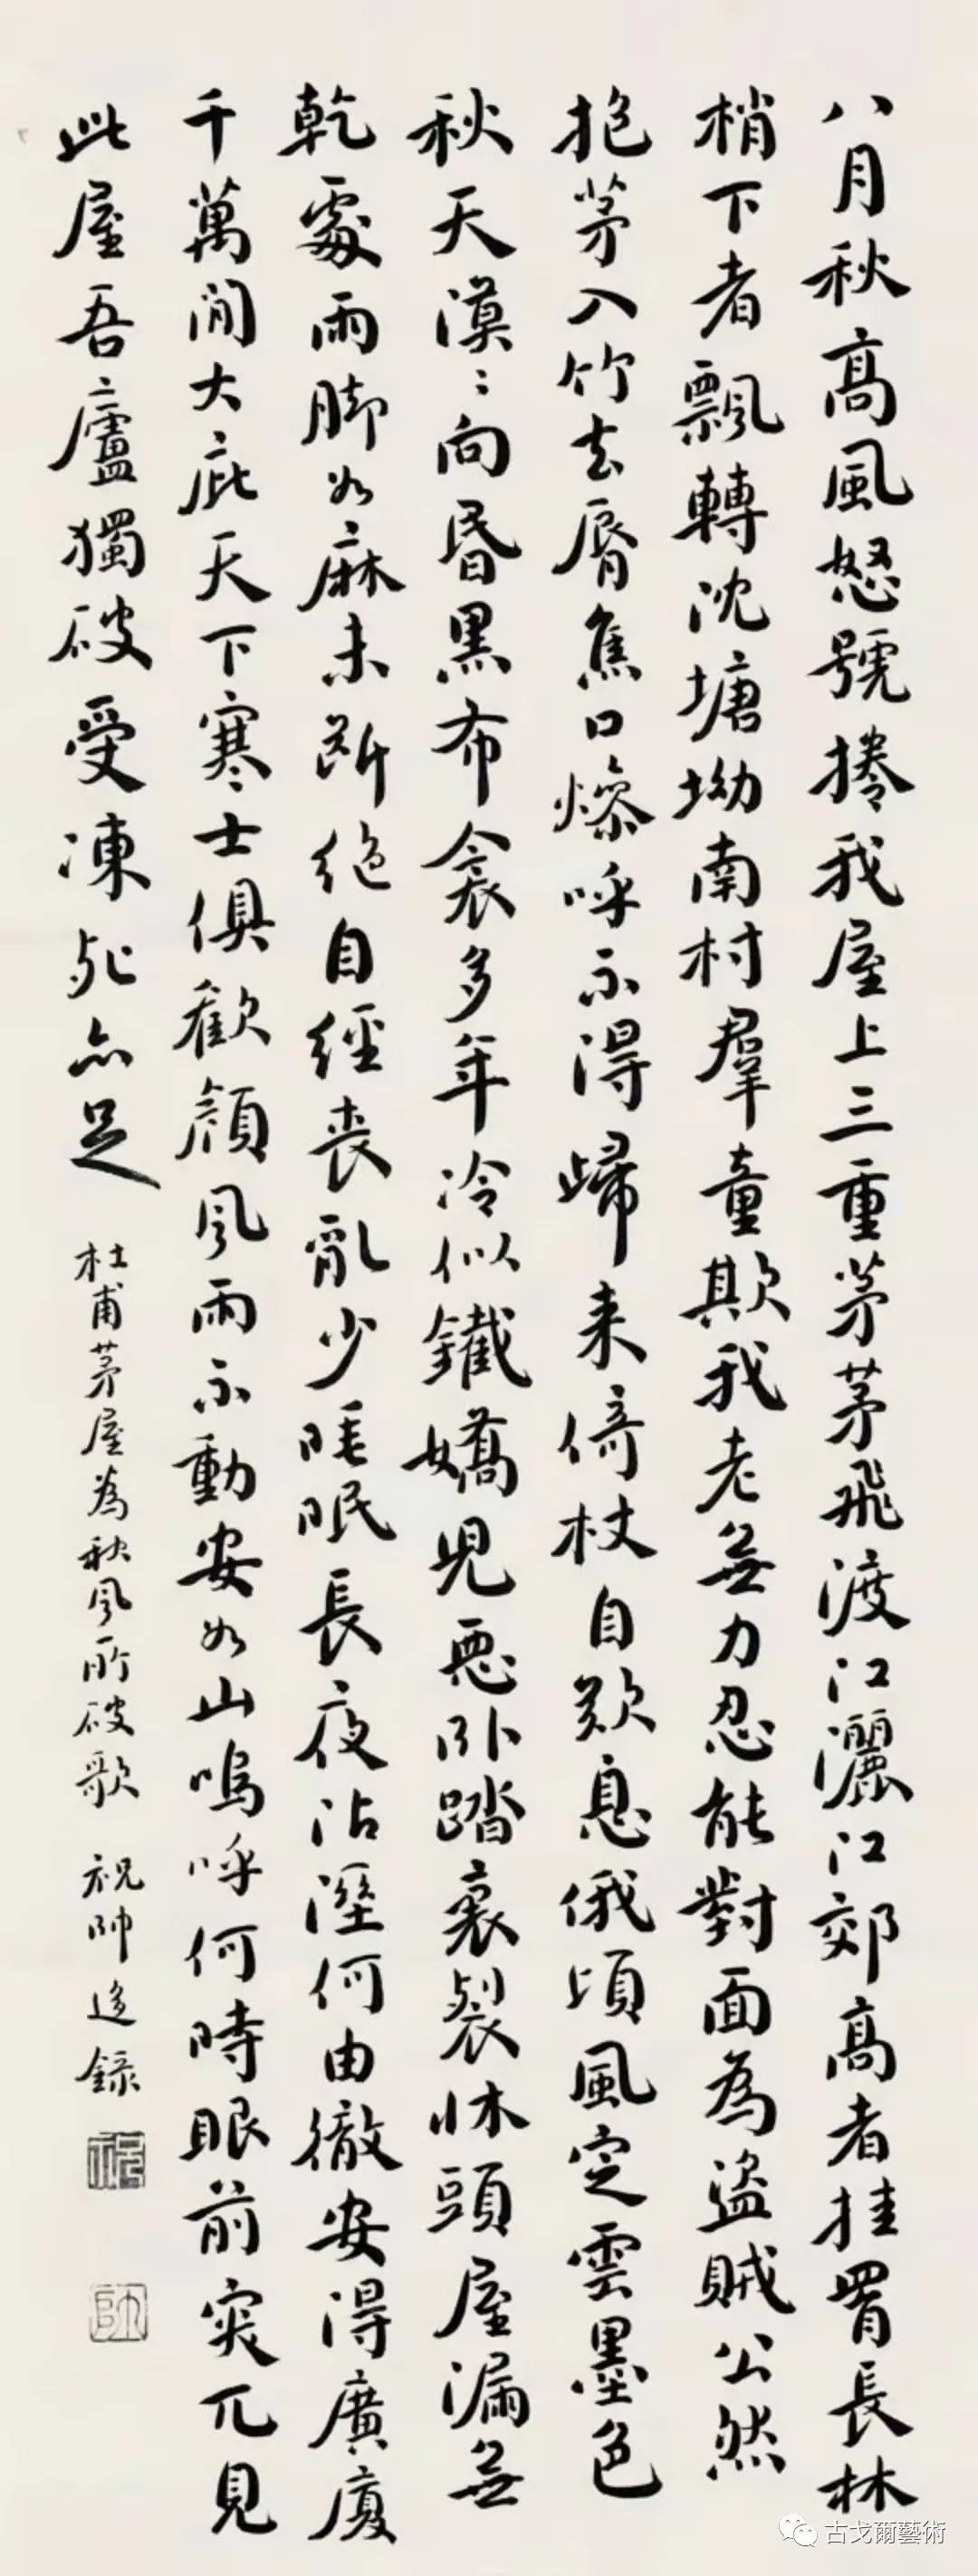 八月秋高風怒號捲我屋上三重茅茅飛渡江灑江郊高者挂罥長林
梢下者飄轉沈塘坳南村羣童欺我老無力忍能對面為盜賊公然
抱茅入竹去脣焦口燥呼不得歸来倚杖自歎息俄頃風定雲墨色
秋天漠〻向昏黑布衾多年冷似鐵嬌兒惡卧踏裏裂牀頭屋漏無
乾處雨脚如麻未斷絕自經喪亂少睡眠長夜沾溼何由徹安得廣廈
千萬間大庇天下寒士俱歡顏風雨不動安如山嗚呼何時眼前突兀見
此屋吾廬獨破受凍死亦足
杜甫茅屋為秋風所破歌 祝帥迻錄
祝
帥
古戈爾藝術